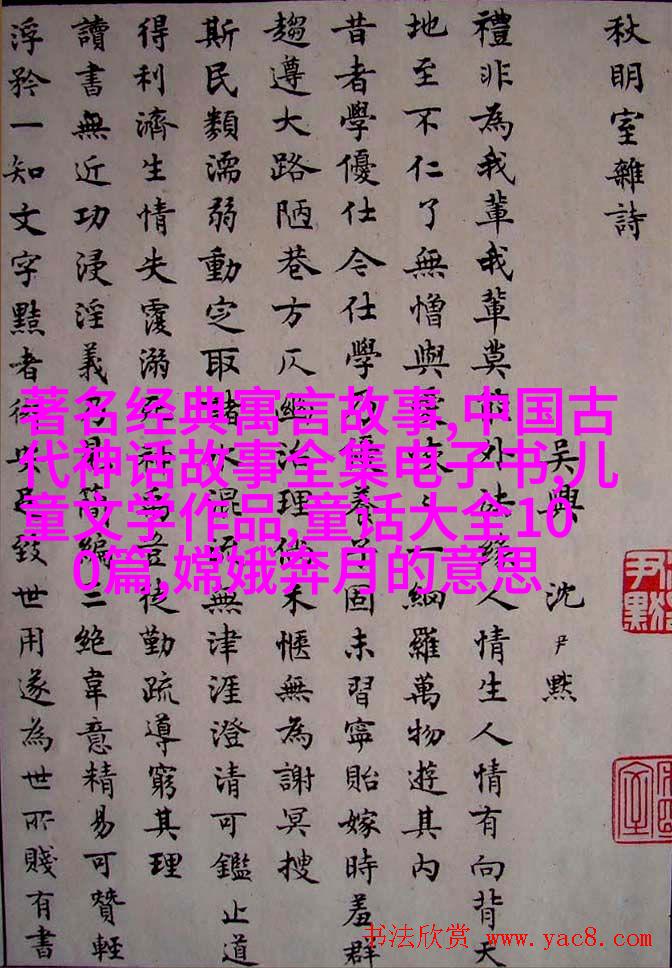 秋明室雜詩
吳興 沈尹默
禮非為我輩我輩莫外法緣人情生人情有向背天
地至不仁了無憎與一綱羅萬物遊其內
昔者學優仕今仕學養固未習寧貽嫁時羞群
趨遵大路陋巷方仄治理未愜無為謝冥搜
斯民類濡弱動定取諸水混無津涯澄清可鑑止道
得利濟生情失覆溺為徒勤疏導窮其理
讀書無近功浸淫義簡編二絕韋意精易可贊輕
浮矜一知文字黠者致世用遂為世所賤有書
著名经典寓言故事,中国古
代神话故事全集电子书,儿
童文学作品,童话大全10
0篇,嫦娥奔月的意思
书法欣赏 www.yac8.com